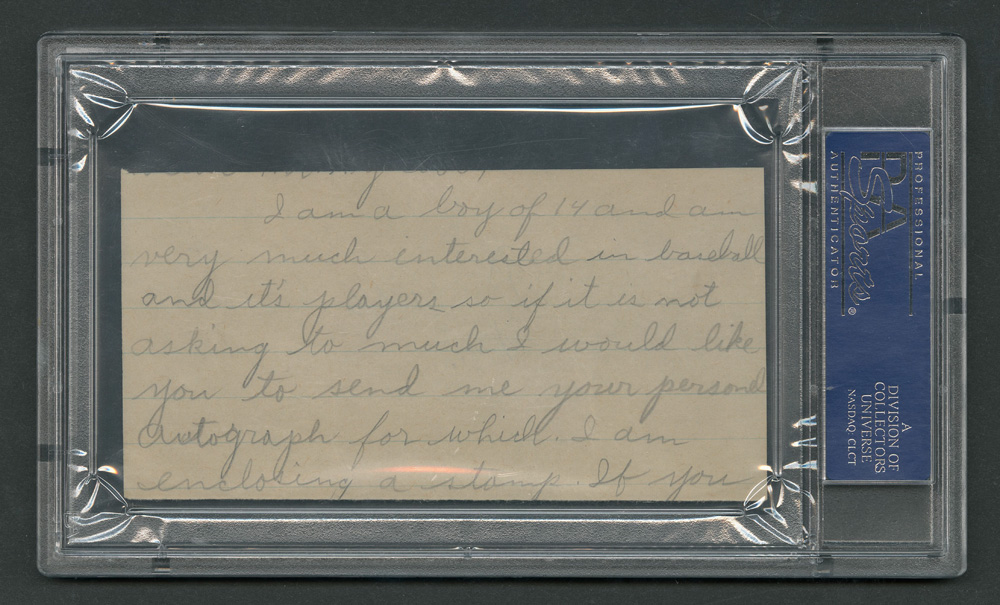 I am a boy of 14 and am
very much interested in baseball
and it's players so if it is not
asking to much I would like
you to send me your personal
autograph for which. I am
enclosing a stamp. If you
PROFESSIONAL
PSA
Sports®
AUTHENTICATOR
A
DIVISION OF
COLLECTORS
UNIVERSE
NASDAQ: CLCT